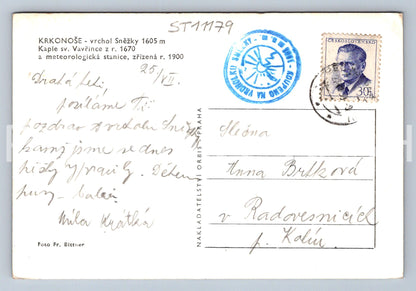 ST11179
KRKONOŠE - vrchol Sněžky 1605 m
Kaple sv. Vavřince z r. 1670
a meteorologická stanice, zřízená r. 1900
25/VII.
Drahá teti,
posíláme Ti
pozdrav z vrcholu Sněžky
kam jsme se dnes
vypravily. Dětem
Míla Krátká
Foto Fr. Bittner
NAKLADATELSTVÍ ORBIS PRAHA
KOUPENO NA VRCHOLKU SNĚŽKY - 1605 m n. m.
ČESKOSLOVENSKO
30h
Anna Brtková
v Radovesnicích
p. Kolín